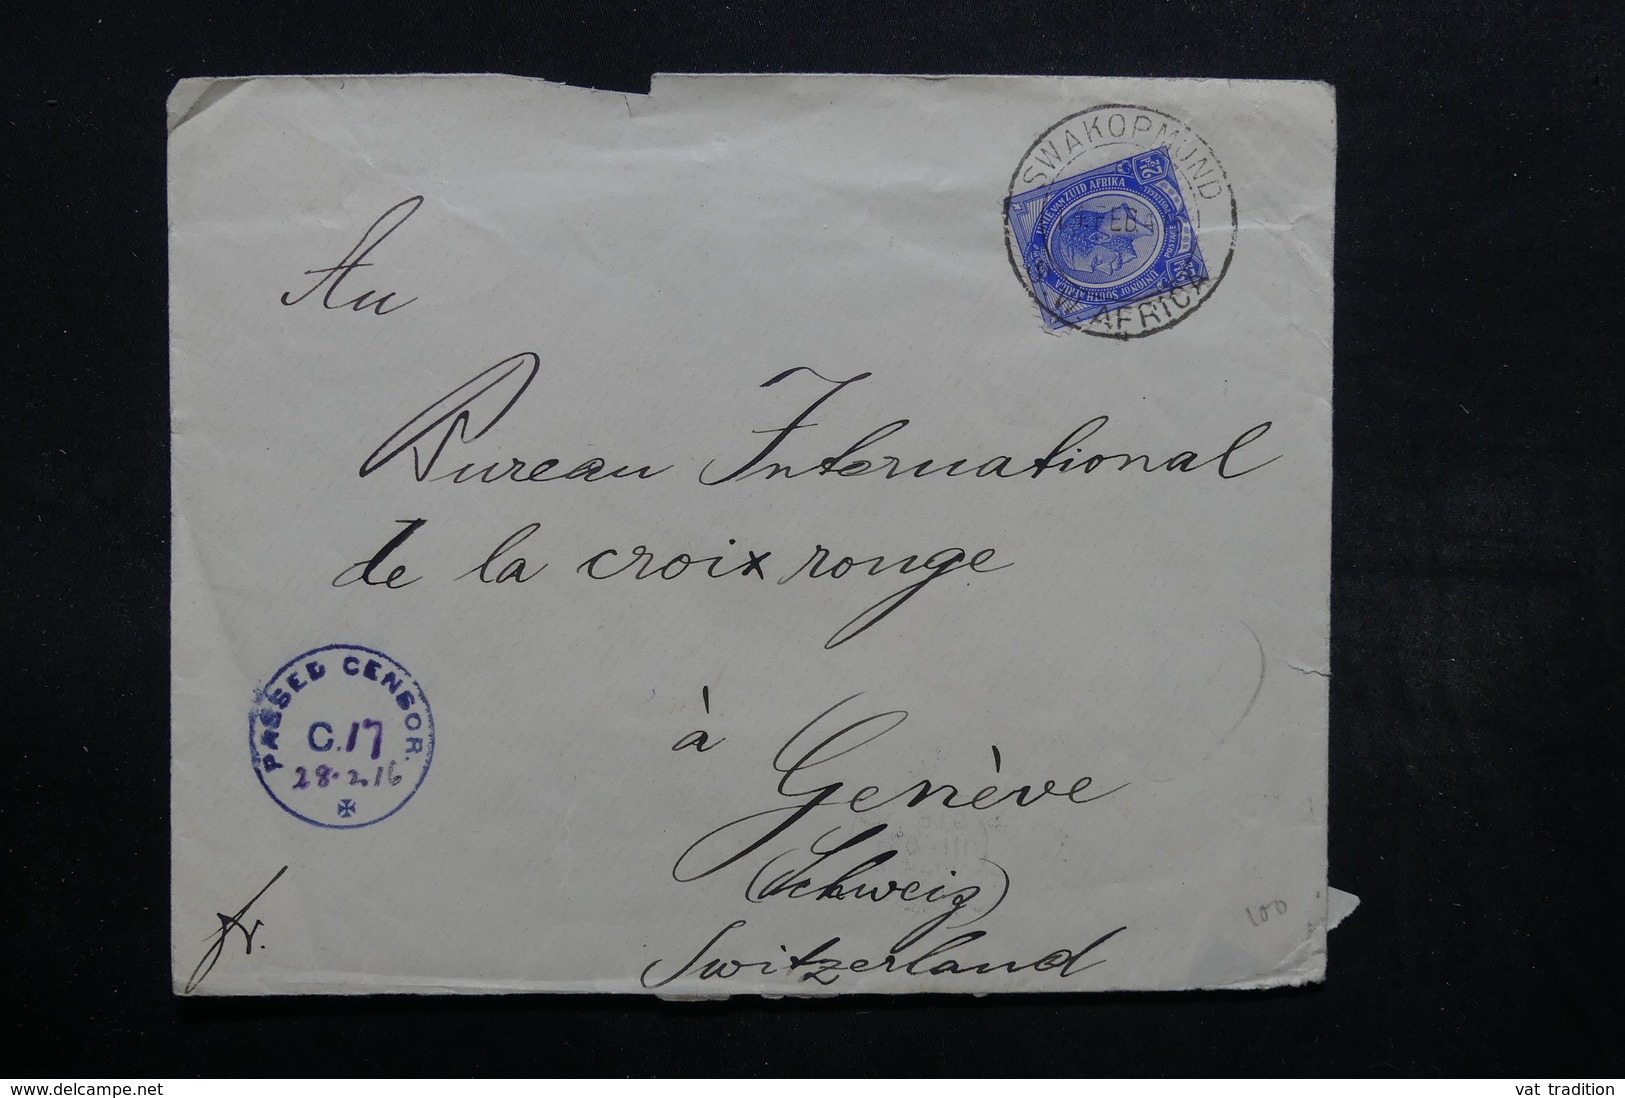 SWAKOPMUND
S.W. AFRICA
UNIE VAN ZUID AFRIKA
UNION OF SOUTH AFRICA
POSTAGE
Au
Bureau International
de la croix rouge
à
Genève
(Schweiz)
Switzerland
PASSED CENSOR.
C.17
28.2.16
fr.
100
www.delcampe.net
vat tradition